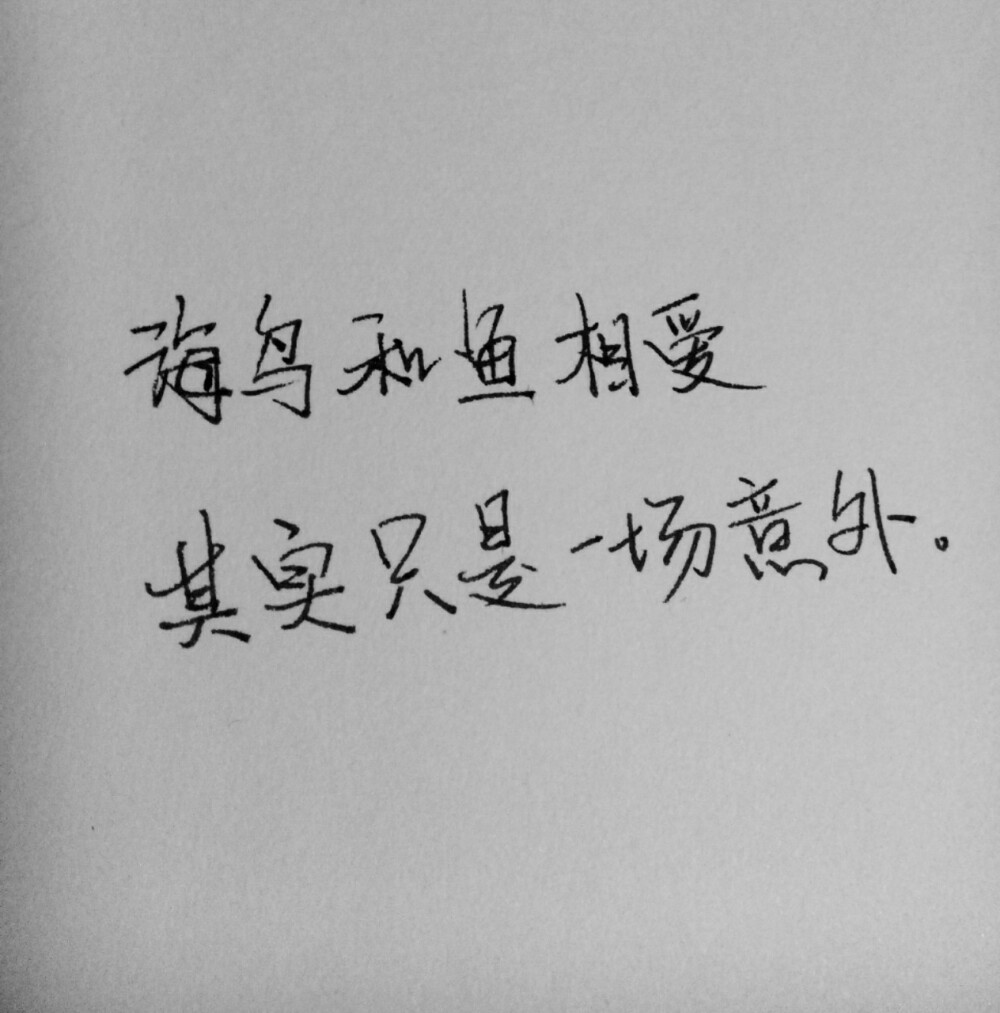 海鸟和鱼相爱
其实只是一场意外。